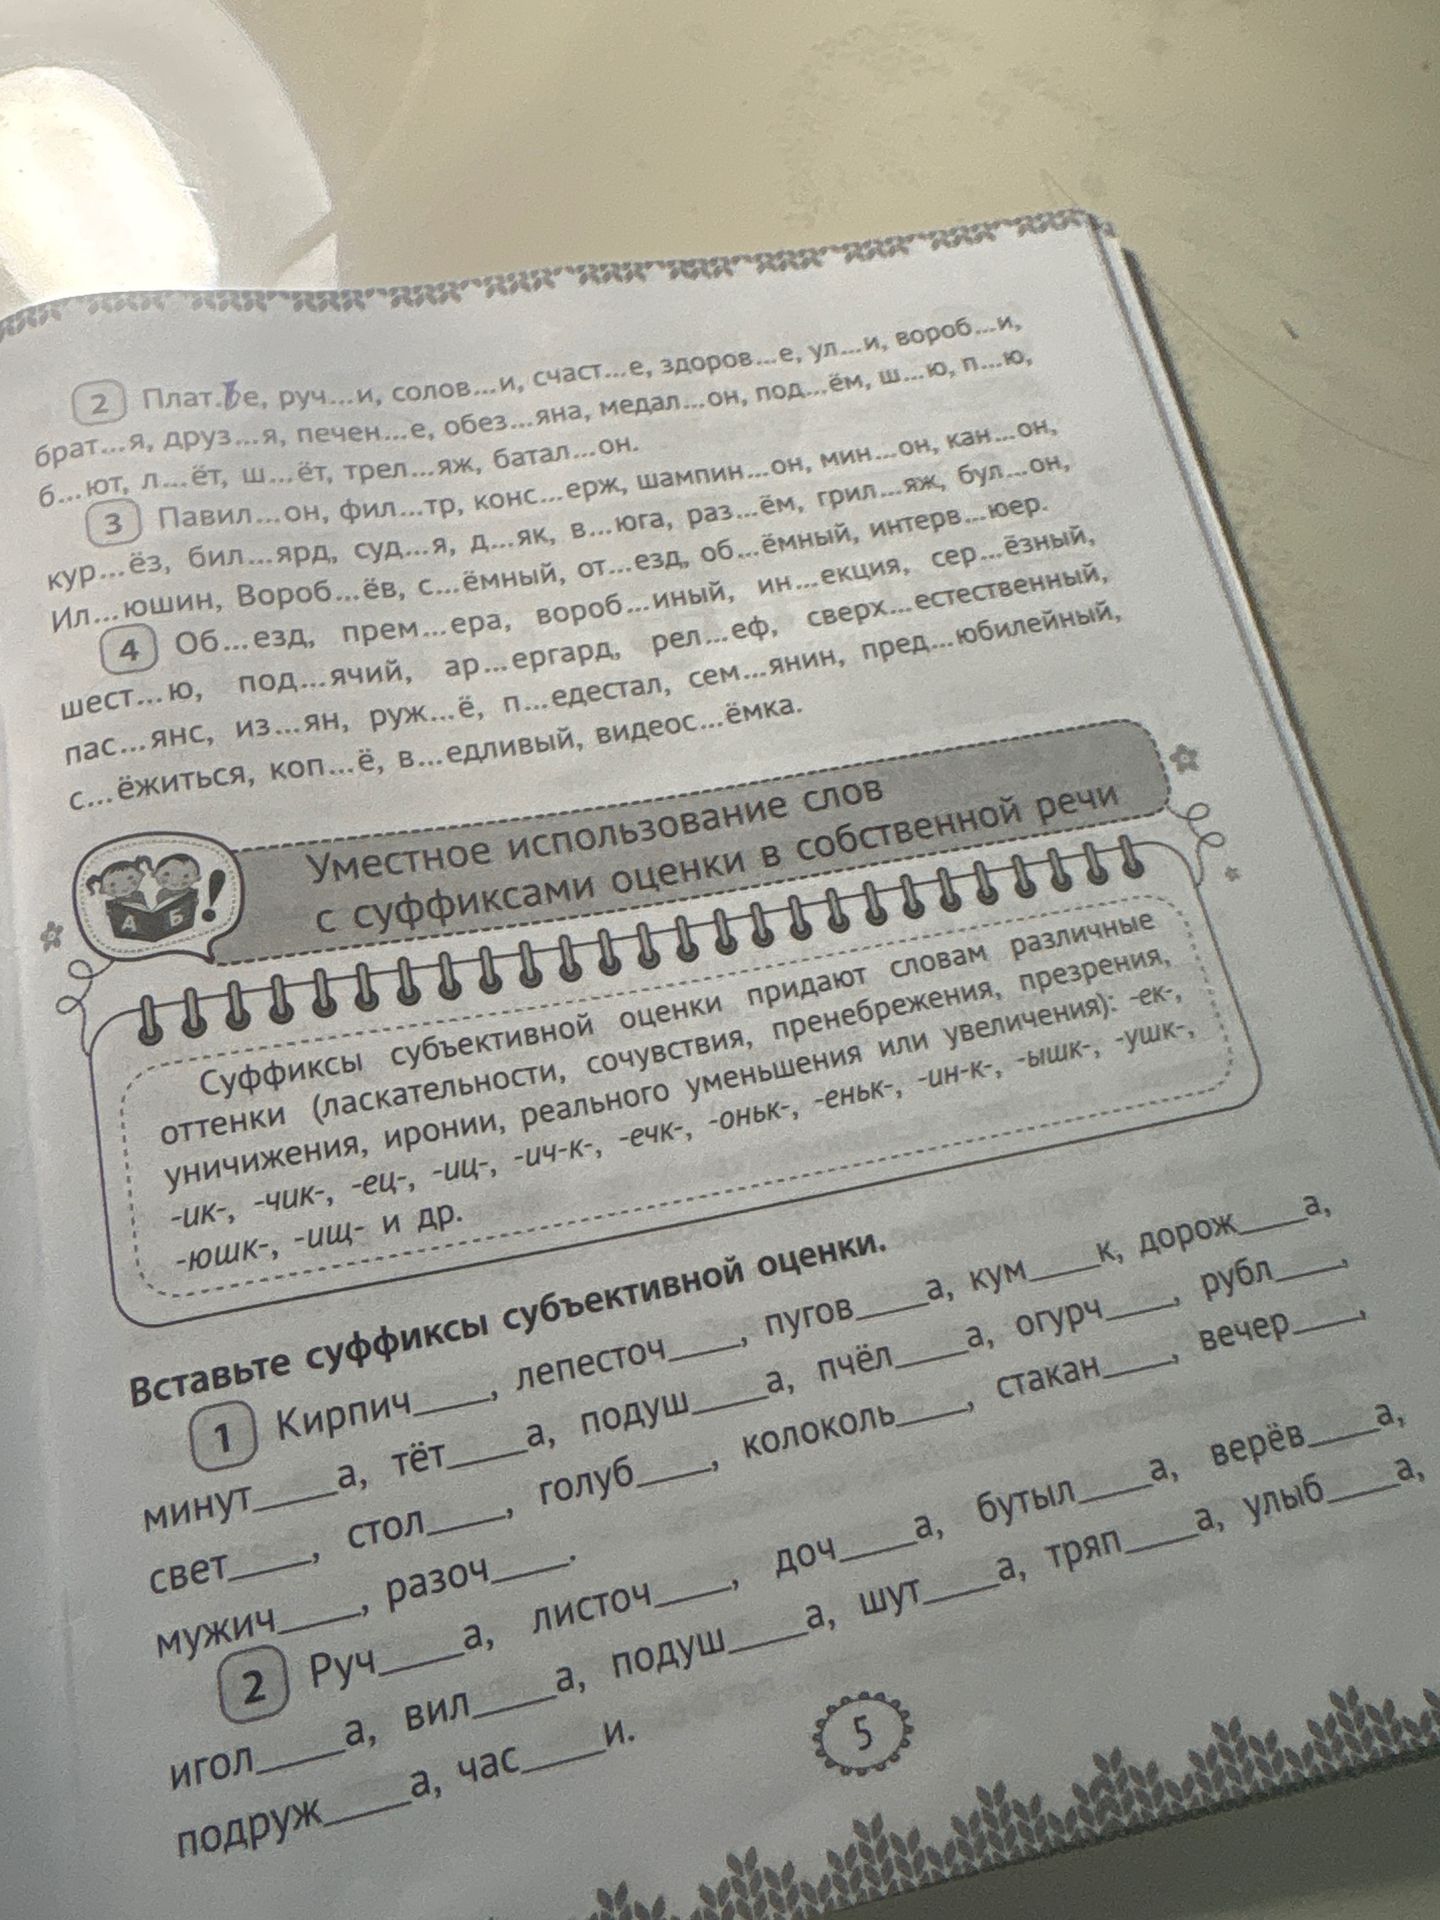 2 Плат.ье, руч...и, солов...и, счаст...е, здоров...е, ул...и, вороб...и,
брат...я, друз...я, печен...е, обез...яна, медал...он, под...ём, ш...ю, п...ю,
б...ют, л...ёт, ш...ёт, трел...яж, батал...он.
3 Павил...он, фил...тр, конс...ерж, шампин...он, мин...он, кан...он,
кур...ёз, бил...ярд, суд...я, д...як, в...юга, раз...ём, грил...яж, бул...он,
Ил...юшин, Вороб...ёв, с...ёмный, от...езд, об...ёмный, интерв...юер.
4 Об...езд, прем...ера, вороб...иный, ин...екция, сер...ёзный,
шест...ю, под...ячий, ар...ергард, рел...еф, сверх...естественный,
пас...янс, из...ян, руж...ё, п...едестал, сем...янин, пред...юбилейный,
с...ёжиться, коп...ё, в...едливый, видеос...ёмка.
Уместное использование слов
с суффиксами оценки в собственной речи
А Б !
Суффиксы субъективной оценки придают словам различные
оттенки (ласкательности, сочувствия, пренебрежения, презрения,
уничижения, иронии, реального уменьшения или увеличения): -ек-,
-ик-, -чик-, -ец-, -иц-, -ич-к-, -ечк-, -оньк-, -еньк-, -ин-к-, -ышк-, -ушк-,
-юшк-, -ищ- и др.
Вставьте суффиксы субъективной оценки.
1 Кирпич____, лепесточ____, пугов____а, кум____к, дорож____а,
минут____а, тёт____а, подуш____а, пчёл____а, огурч____, рубл____,
свет____, стол____, голуб____, колоколь____, стакан____, вечер____,
мужич____, разоч____.
2 Руч____а, листоч____, доч____а, бутыл____а, верёв____а,
игол____а, вил____а, подуш____а, шут____а, тряп____а, улыб____а,
подруж____а, час____и.
5